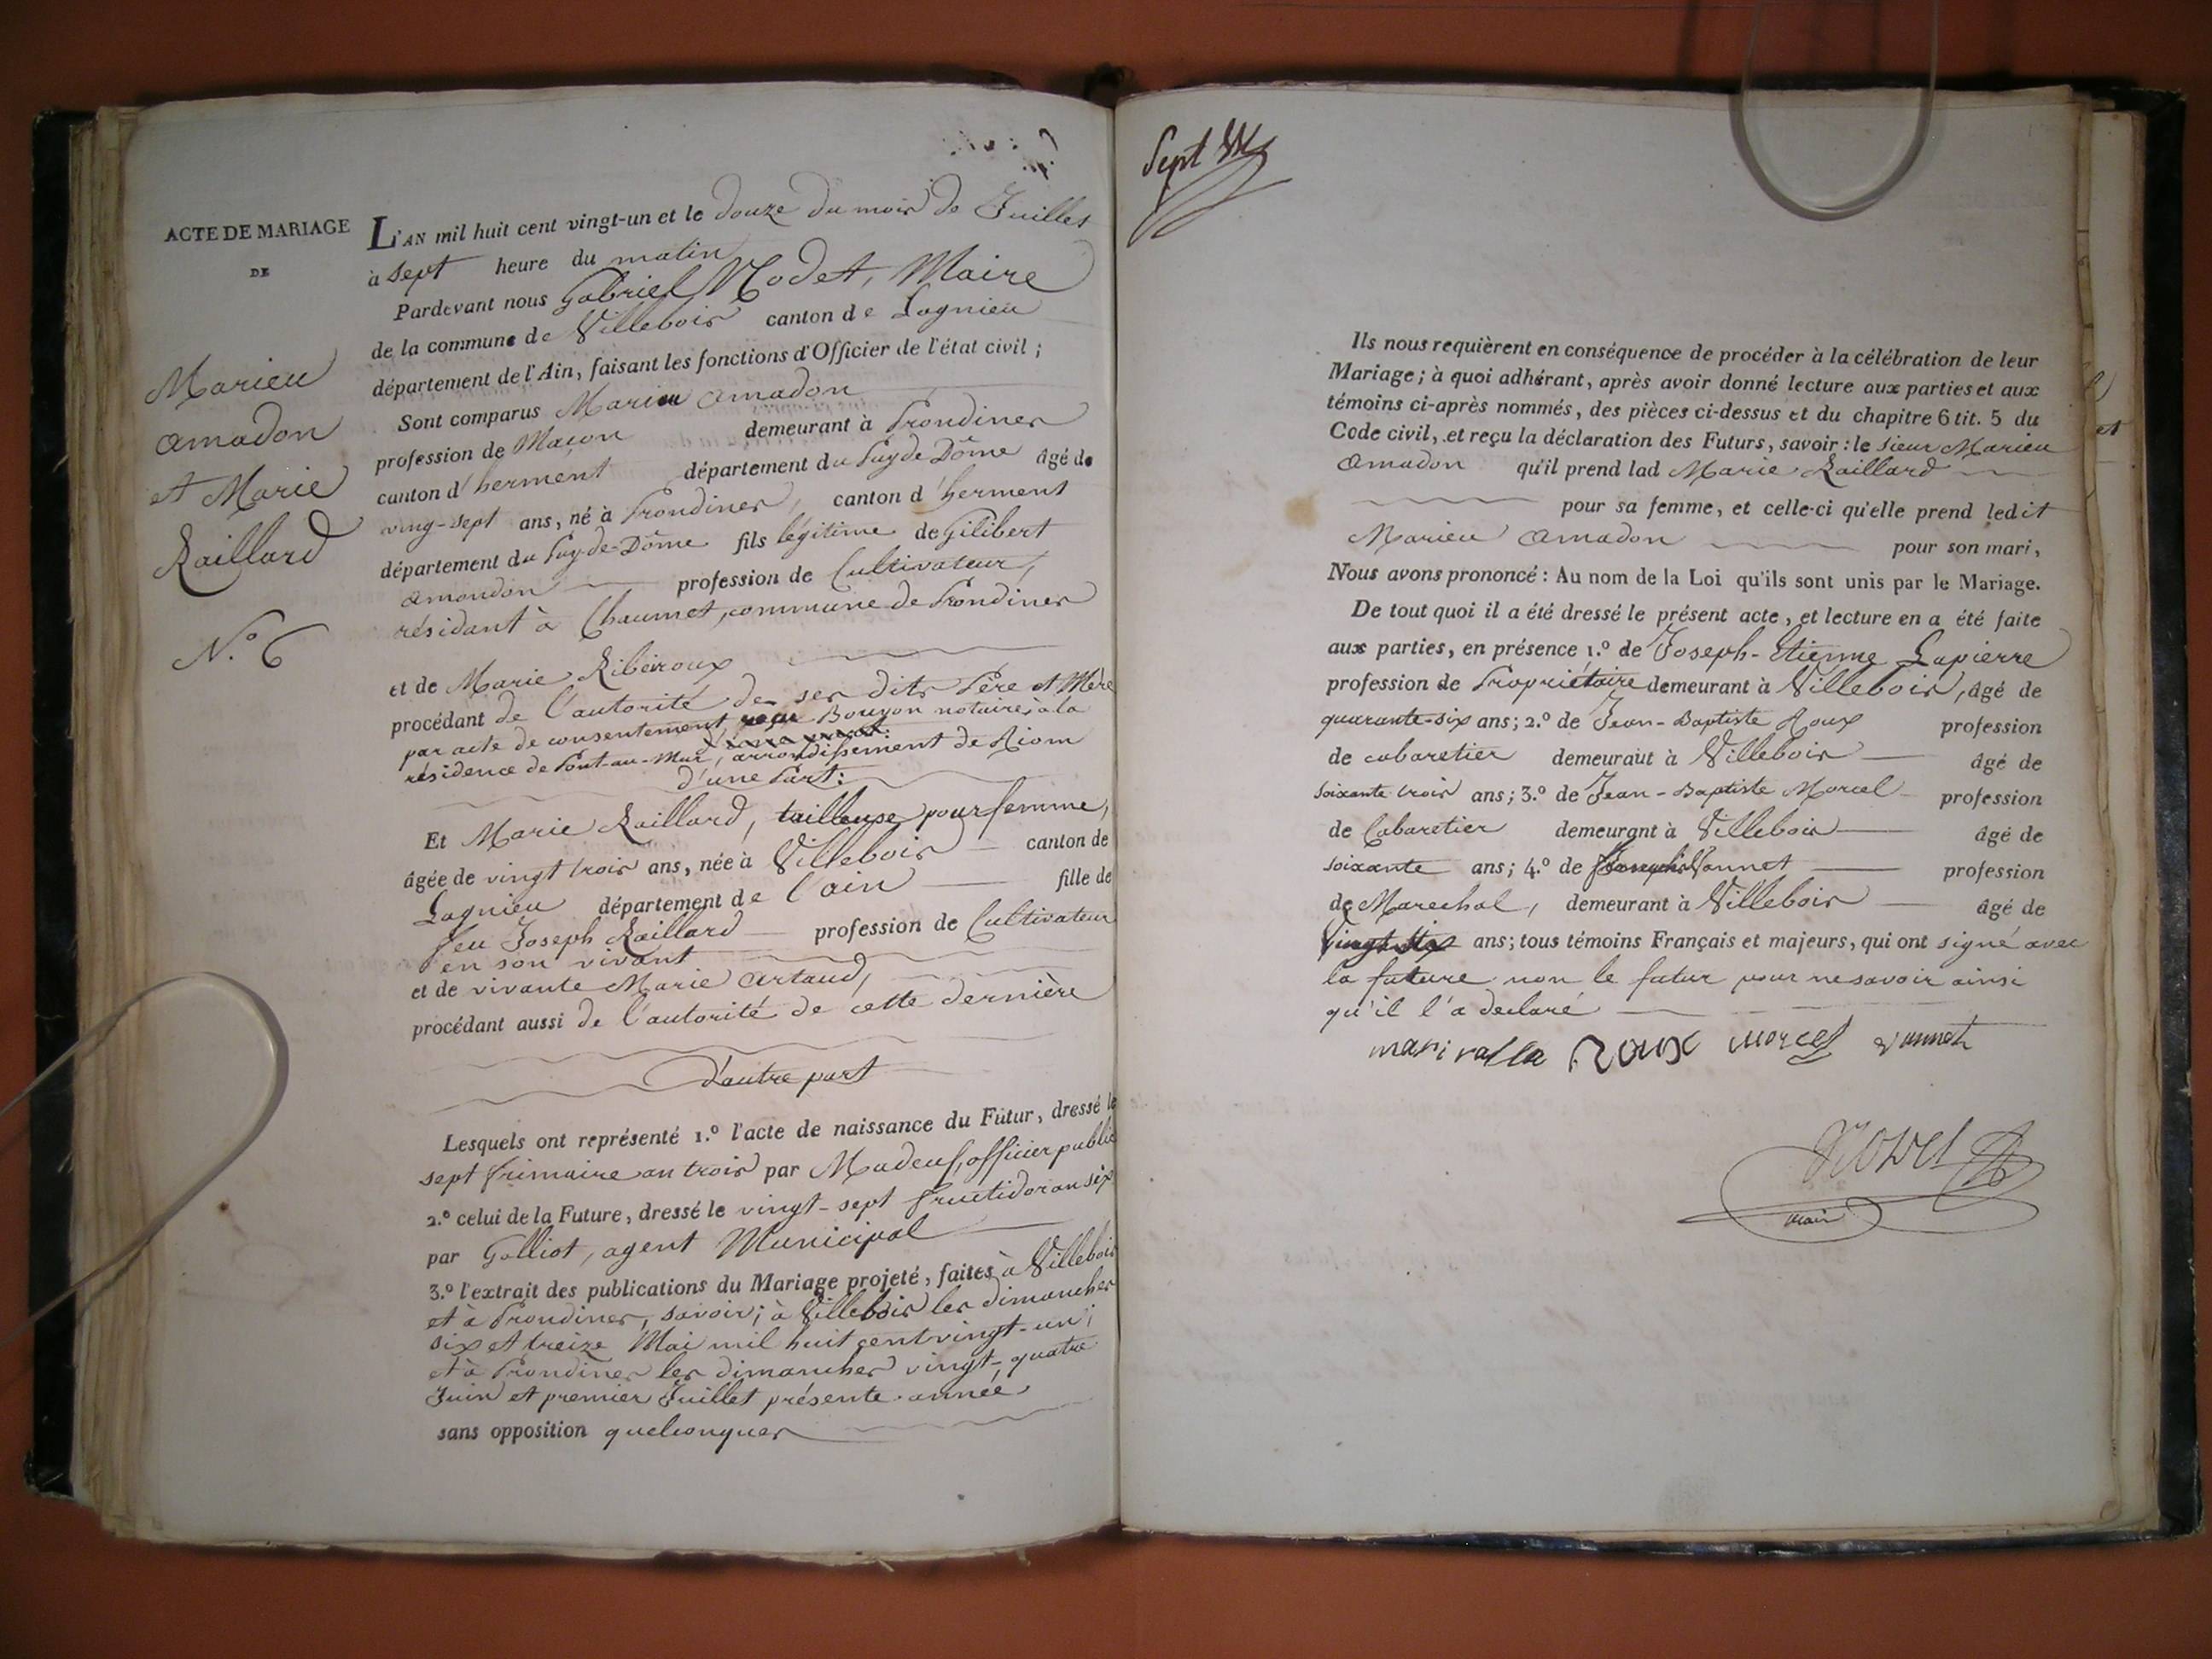 ACTE DE MARIAGE
DE
Marien
amadon
et Marie
Raillard
N.º 6
L'AN mil huit cent vingt-un et le douze du mois de Juillet
à sept heure du matin
Pardevant nous Gabriel Modet, Maire
de la commune de Villebois canton de Lagnieu
département de l'Ain, faisant les fonctions d'Officier de l'état civil ;
Sont comparus Marien amadon
profession de Maçon demeurant à Prondines
canton d'herment département du Puy de Dôme âgé de
ving-sept ans, né à Prondines, canton d'herment
département du Puy-de-Dôme fils légitime de Gilibert
amondon profession de Cultivateur,
résidant à Chaumet, commune de Prondines
et de Marie Ribeiroux
procédant de l'autorité de ses dits Père et Mère
par acte de consentement, reçu Bouyon notaire, à la
résidence de Pont-au-Mur, arrondissement de Riom
d'une Part :
Et Marie Raillard, tailleuse pour femme,
âgée de vingt trois ans, née à Villebois canton de
Lagnieu département de l'ain fille de
feu Joseph Raillard profession de Cultivateur
en son vivant
et de vivante Marie Artaud,
procédant aussi de l'autorité de cette dernière
D'autre part
Lesquels ont représenté 1.º l'acte de naissance du Futur, dressé le
sept frimaire an trois par Madeuf, officier public
2.º celui de la Future, dressé le vingt-sept fructidor an six
par Galliot, agent Municipal
3.º l'extrait des publications du Mariage projeté, faites à Villebois
et à Prondines, savoir ; à Villebois les dimanches
six et treize Mai mil huit cent vingt-un ;
et à Prondines les dimanches vingt-quatre
Juin et premier Juillet présente année
sans opposition quelconques
Sept
Ils nous requièrent en conséquence de procéder à la célébration de leur
Mariage ; à quoi adhérant, après avoir donné lecture aux parties et aux
témoins ci-après nommés, des pièces ci-dessus et du chapitre 6 tit. 5 du
Code civil, et reçu la déclaration des Futurs, savoir : le sieur Marien
Amadon qu'il prend lad Marie Raillard
pour sa femme, et celle-ci qu'elle prend ledit
Marien Amadon pour son mari,
Nous avons prononcé : Au nom de la Loi qu'ils sont unis par le Mariage.
De tout quoi il a été dressé le présent acte, et lecture en a été faite
aux parties, en présence 1.º de Joseph-Etienne Lapierre
profession de Propriétaire demeurant à Villebois, âgé de
quarante-six ans ; 2.º de Jean-Baptiste Roux profession
de cabaretier demeurant à Villebois âgé de
soixante trois ans ; 3.º de Jean-Baptiste Morcel profession
de Cabaretier demeurant à Villebois âgé de
soixante ans ; 4.º de Vannet profession
de Marechal, demeurant à Villebois âgé de
ans ; tous témoins Français et majeurs, qui ont signé avec
la future non le futur pour ne savoir ainsi
qu'il l'a declaré
Roux morcel vannet
Modet
maire